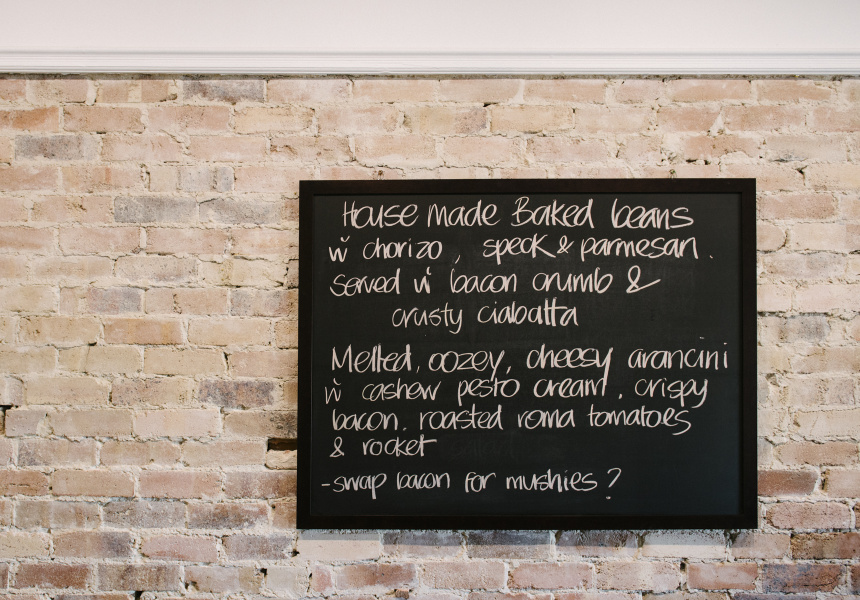 House made Baked beans
w chorizo, speck & parmesan.
served w bacon crumb &
crusty ciabatta
Melted, oozey, cheesy arancini
w cashew pesto cream, crispy
bacon, roasted roma tomatoes
& rocket
-swap bacon for mushies?